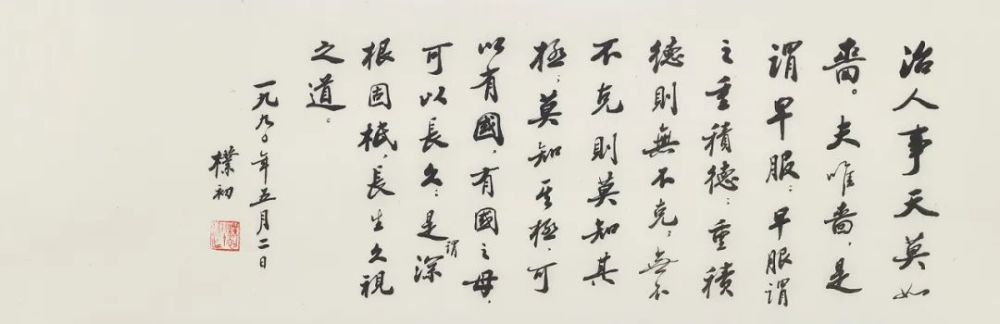 治人事天莫如
嗇。夫唯嗇，是
謂早服；早服謂
之重積德；重積
德則無不克，無不
不克則莫知其
極；莫知其極，可
以有國，有國之母，
可以長久；是謂深
根固柢，長生久視
之道。
一九九〇年五月二日
樸初